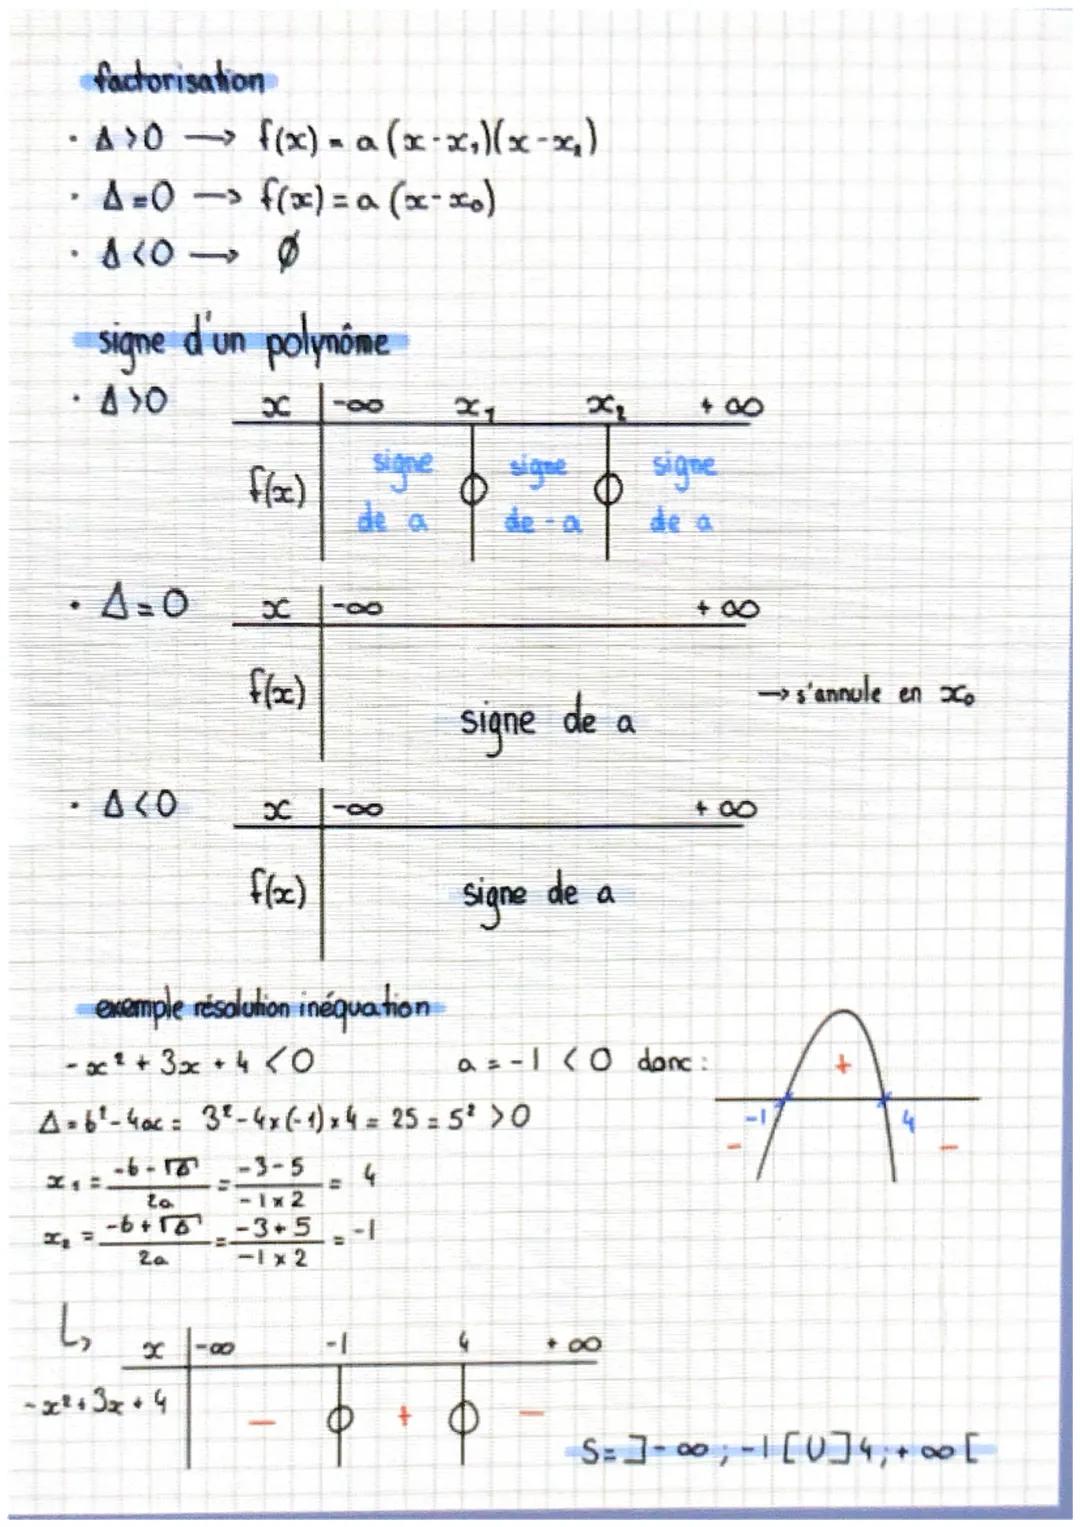 factorisation
· Δ>0 → f(x) = a (x-x₁)(x-x₂)
· Δ=0 → f(x) = a (x-x₀)
· Δ<0 → Ø
signe d'un polynôme
· Δ>0 x -∞ x₁ x₂ +∞
f(x) signe de a signe de -a signe de a
· Δ=0 x -∞ +∞
f(x) signe de a → s'annule en x₀
· Δ<0 x -∞ +∞
f(x) signe de a
exemple résolution inéquation
-x² + 3x + 4 <0 a = -1 < 0 donc :
+
-1 4
- -
Δ = b²-4ac = 3²-4x(-1)x4 = 25 = 5² >0
x₁ = -b-√Δ / 2a = -3-5 / -1x2 = 4
x₂ = -b+√Δ / 2a = -3+5 / -1x2 = -1
↳ x -∞ -1 4 +∞
-x²+3x+4 - + -
S= ]-∞; -1[U]4;+∞[